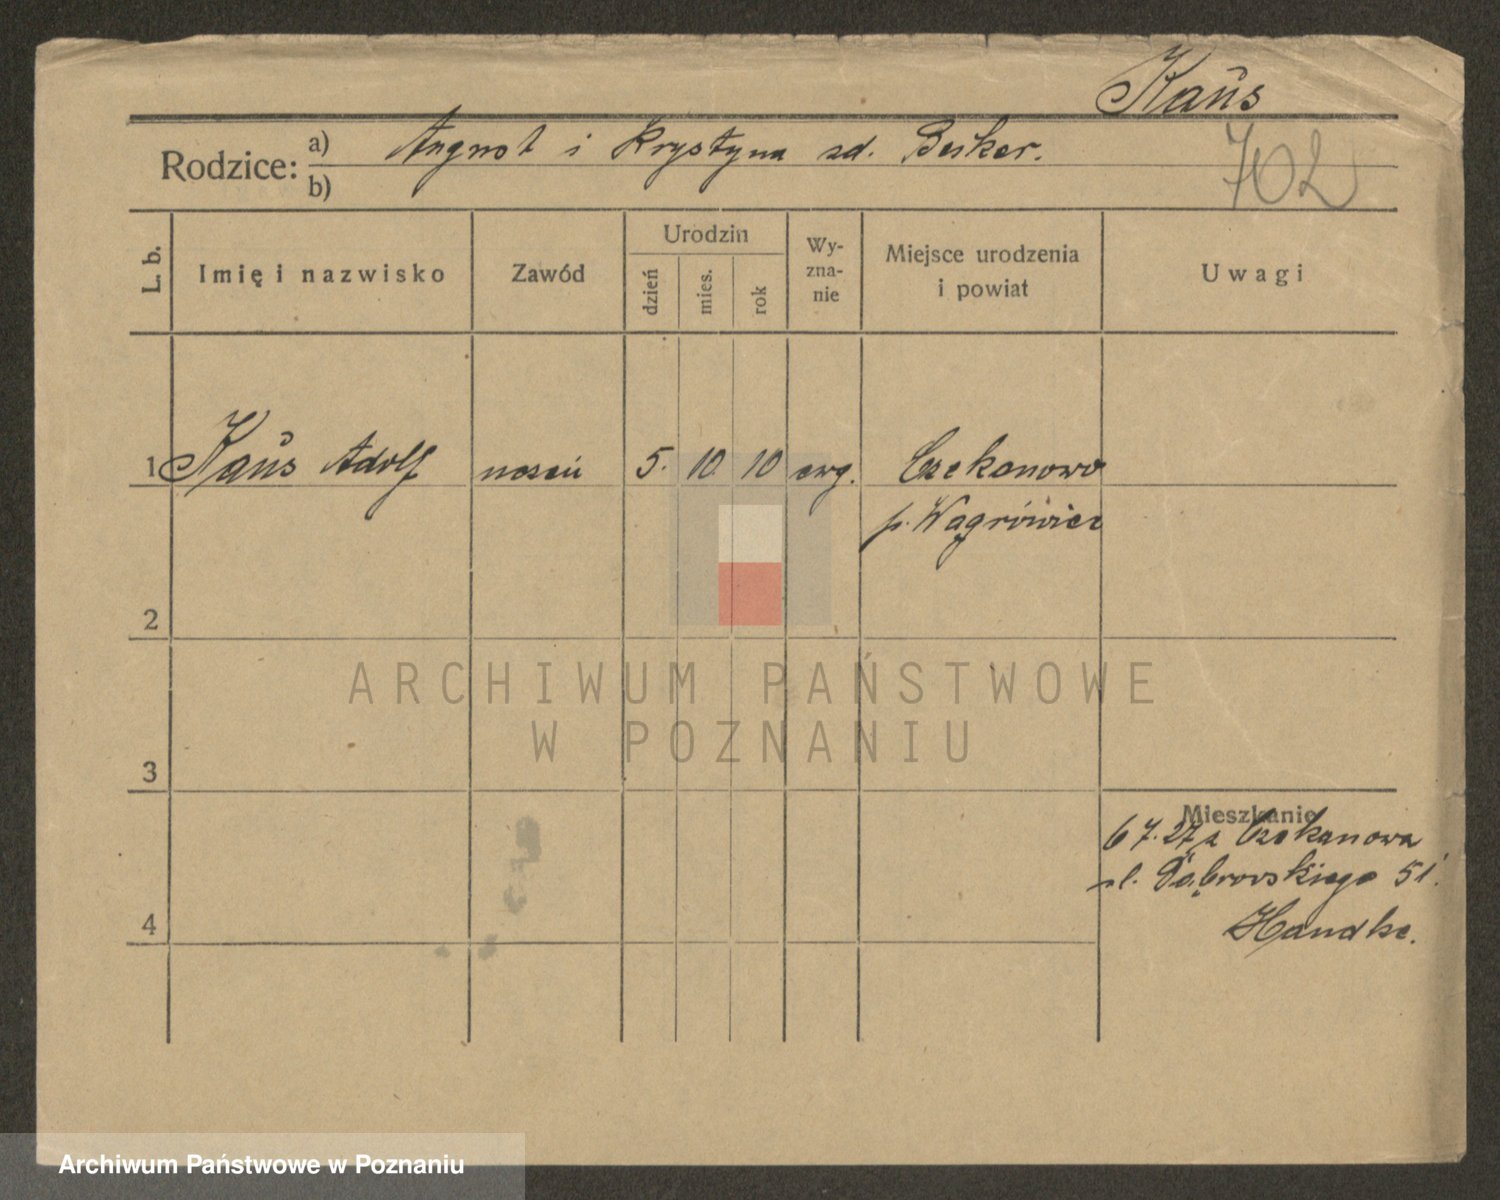 Kaŭs
Rodzice: a) August i Krystyna zd. Besker.
b)
702
L. b.
Imię i nazwisko
Zawód
Urodzin
dzień
mies.
rok
Wy-
zna-
nie
Miejsce urodzenia
i powiat
Uwagi
1 Kaŭs Adolf uczeń 5. 10 10 ewg. Czekanowo
p. Wągrówiec
2
ARCHIWUM PAŃSTWOWE
W POZNANIU
3
Mieszkanie
6 7. 27 z Czekanowa
ul. Dąbrowskiego 51.
Handke.
4
Archiwum Państwowe w Poznaniu